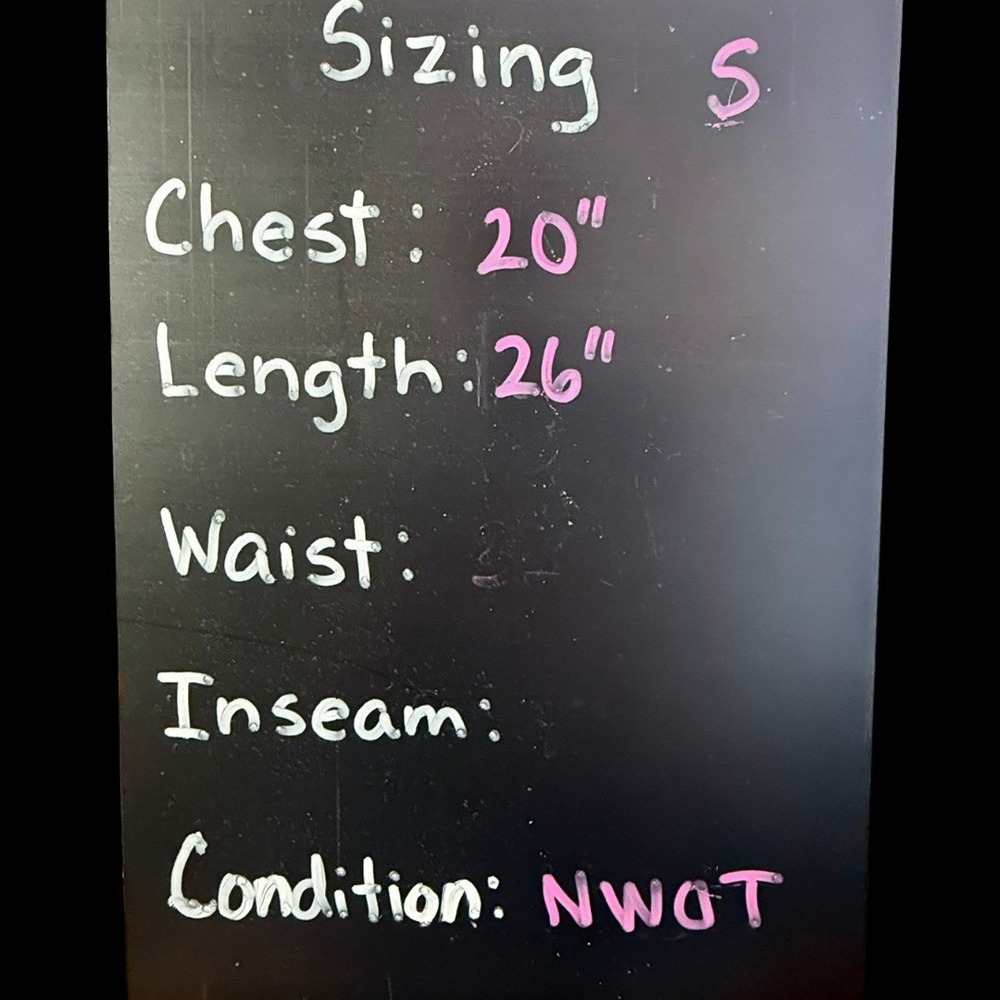 Sizing S
Chest: 20"
Length: 26"
Waist:
Inseam:
Condition: NWOT